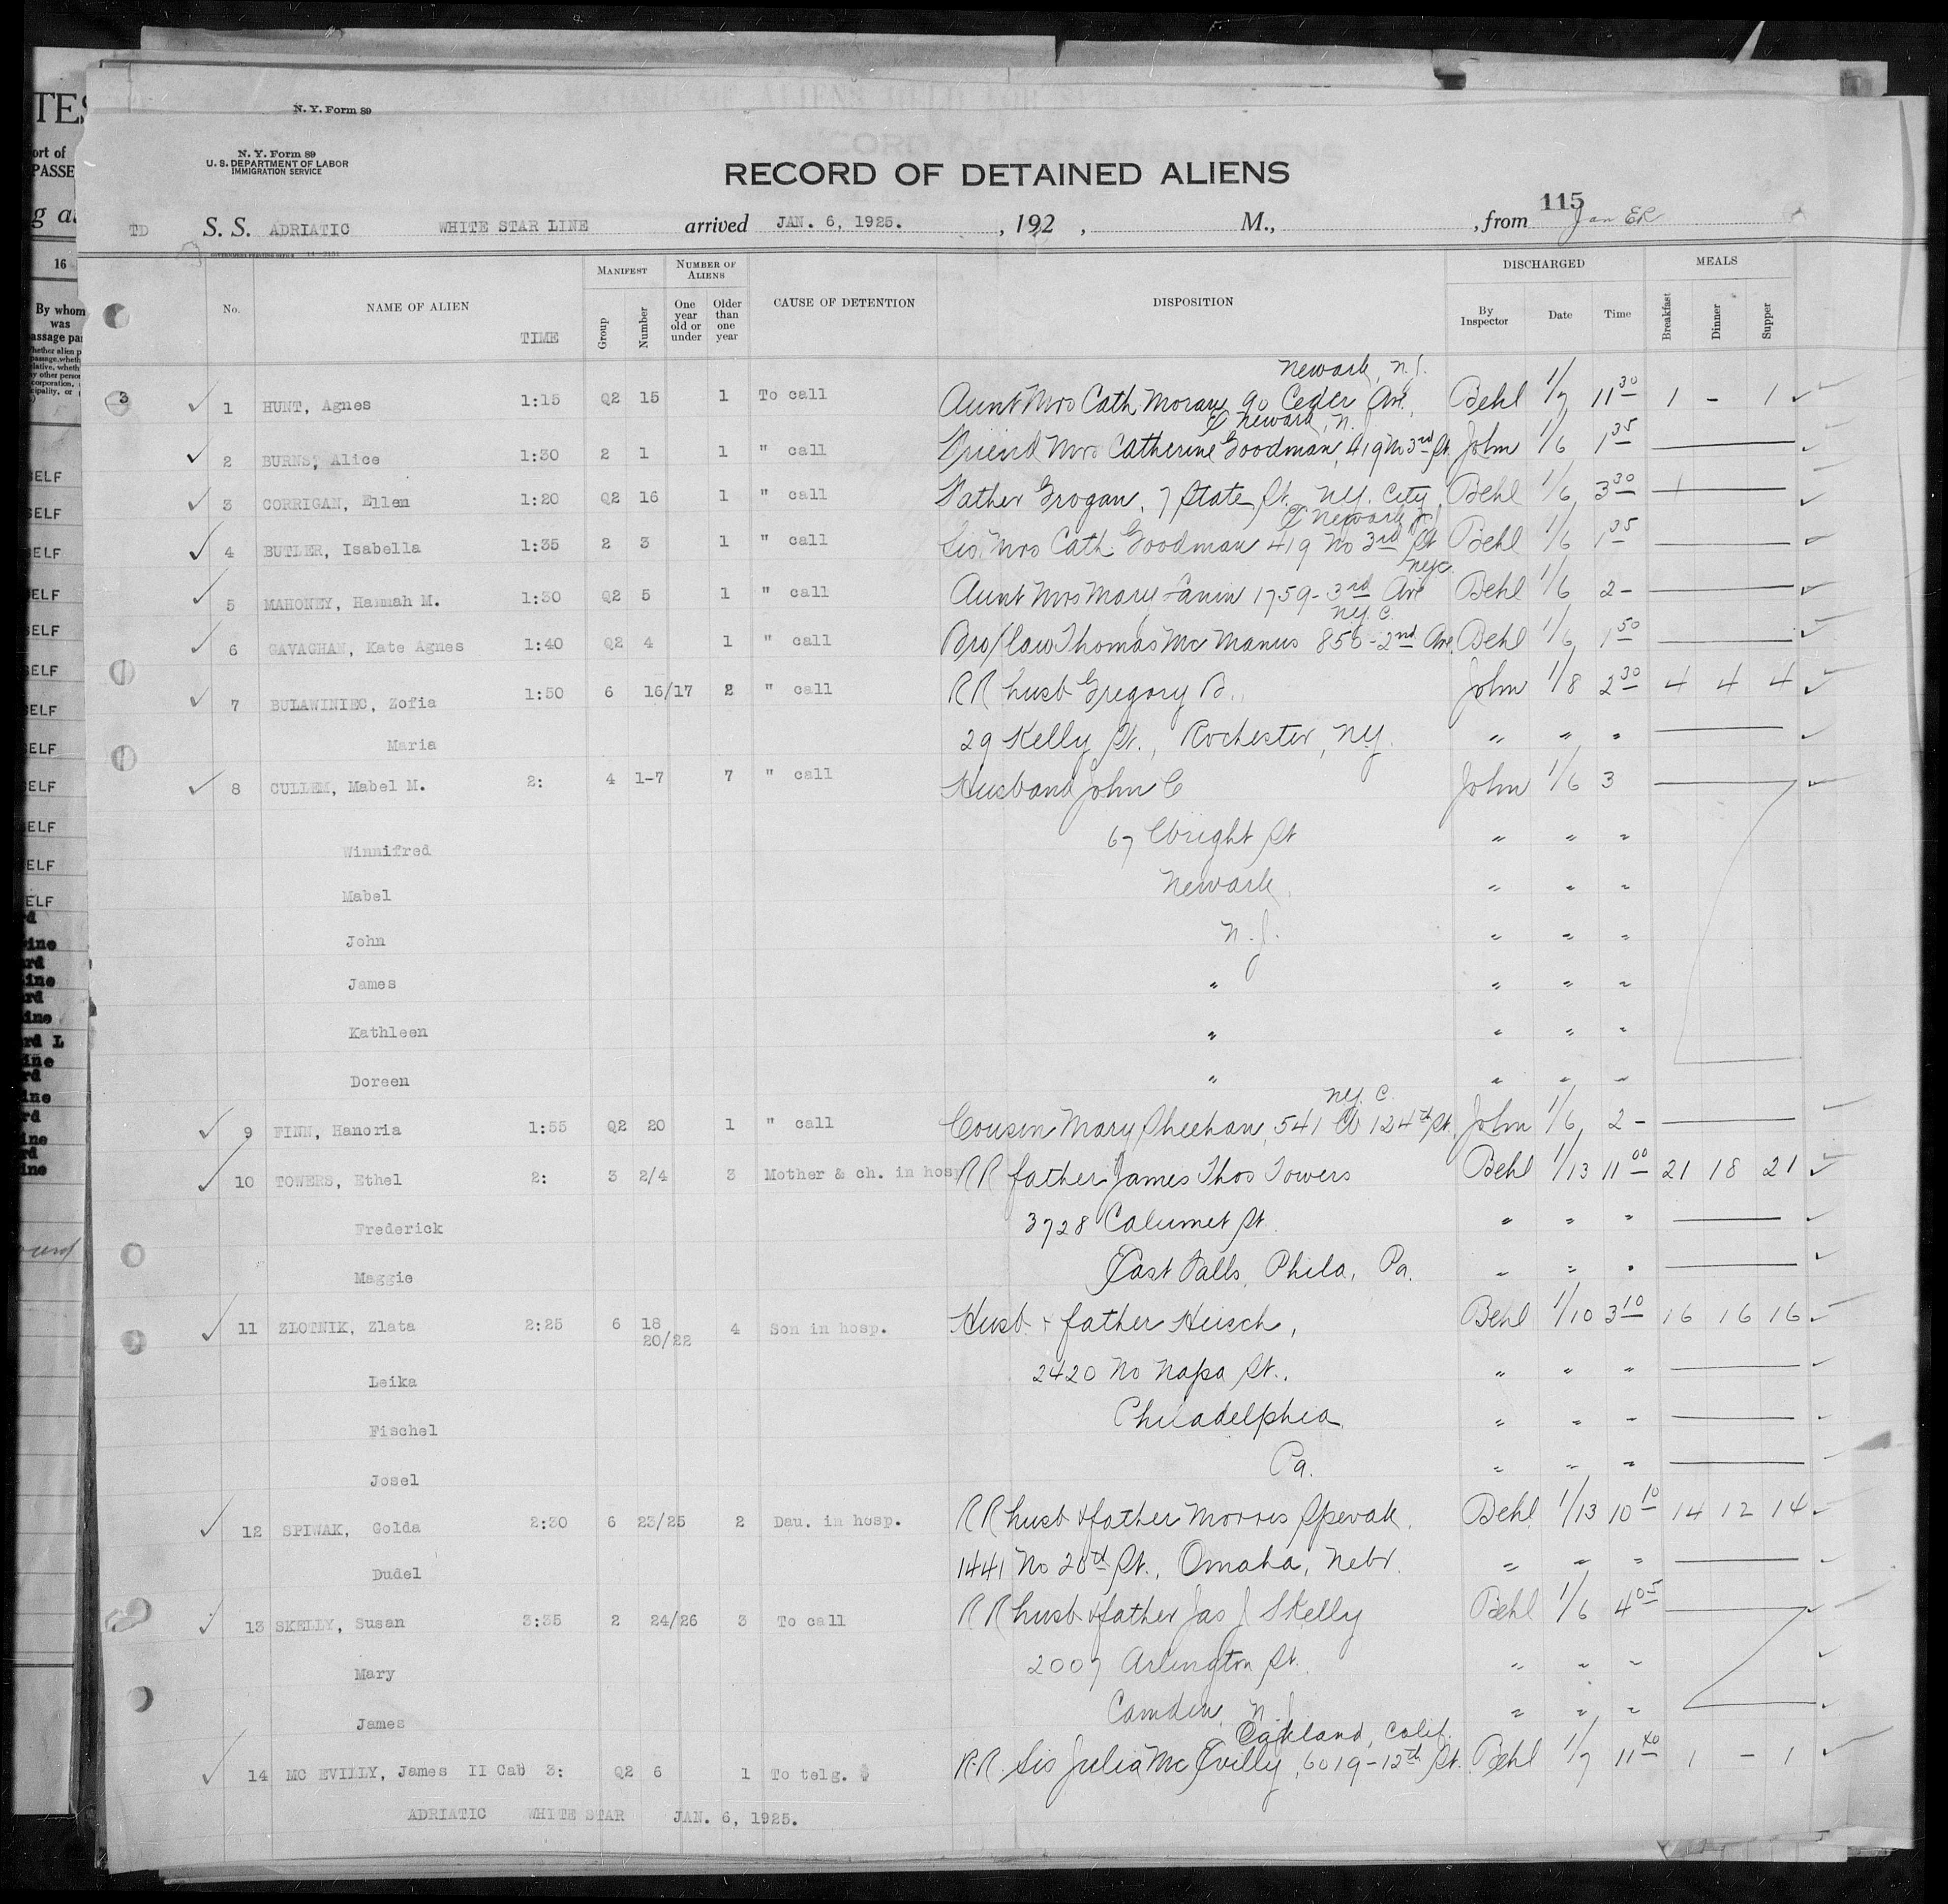 N. Y. Form 89
N. Y. Form 89
U. S. DEPARTMENT OF LABOR
IMMIGRATION SERVICE
RECORD OF DETAINED ALIENS
115
TD S. S. ADRIATIC WHITE STAR LINE arrived JAN. 6, 1925. , 192 , M., , from
No. NAME OF ALIEN TIME MANIFEST Group Number NUMBER OF ALIENS One year old or under Older than one year CAUSE OF DETENTION DISPOSITION DISCHARGED By Inspector Date Time MEALS Breakfast Dinner Supper
Newark, N.J.
3 1 HUNT, Agnes 1:15 Q2 15 1 To call Aunt Mrs Cath Moran 90 Ceder Ave., Behl 1/7 11 30 1 - 1
Newark, N.J.
2 BURNS, Alice 1:30 2 1 1 " call Friend Mrs Catherine Goodman, 419 No 3rd St. John 1/6 1 35
3 CORRIGAN, Ellen 1:20 Q2 16 1 " call Father Grogan, 7 State St. N.Y. City Behl 1/6 3 30
Newark N.J.
4 BUTLER, Isabella 1:35 2 3 1 " call Sis. Mrs Cath Goodman 419 No 3rd St Behl 1/6 1 35
NYC.
5 MAHONEY, Hannah M. 1:30 Q2 5 1 " call Aunt Mrs Mary Fanin 1759-3rd Ave Behl 1/6 2-
N.Y.C.
6 GAVAGHAN, Kate Agnes 1:40 Q2 4 1 " call Bro/law Thomas Mc Manus 856-2nd Ave. Behl 1/6 1 50
7 BULAWINIEC, Zofia 1:50 6 16/17 2 " call RR husb Gregory B. John 1/8 2 30 4 4 4
Maria 29 Kelly St., Rochester, N.Y. " " "
8 CULLEM, Mabel M. 2: 4 1-7 7 " call Husband John C John 1/6 3
Winnifred 67 Wright St " " "
Mabel Newark, " " "
John N.J. " " "
James " " " "
Kathleen " " " "
Doreen " " " "
N.Y.C.
9 FINN, Hanoria 1:55 Q2 20 1 " call Cousin Mary Sheehan, 541 W 124th St. John 1/6 2-
10 TOWERS, Ethel 2: 3 2/4 3 Mother & ch. in hosp RR father James Thos Towers Behl 1/13 11 00 21 18 21
Frederick 3728 Calumet St. " " "
Maggie East Falls, Phila, Pa. " " "
11 ZLOTNIK, Zlata 2:25 6 18 20/22 4 Son in hosp. Husb. + father Hersch, Behl 1/10 3 10 16 16 16
Leika 2420 No Napa St., " " "
Fischel Philadelphia " " "
Josel Pa. " " "
12 SPIWAK, Golda 2:30 6 23/25 2 Dau. in hosp. RR husb & father Morris Spevak. Behl 1/13 10 10 14 12 14
Dudel 1441 No 20th St., Omaha, Nebr. " " "
13 SKELLY, Susan 3:35 2 24/26 3 To call RR husb & father Jas J Skelly Behl 1/6 4 05
Mary 2007 Arlington St. " " "
James Camden, N.J. " " "
Oakland, Calif.
14 MC EVILLY, James II Cab 3: Q2 6 1 To telg. $ R.R. Sis Julia McEvilly, 6019-12th St. Behl 1/7 11 40 1 - 1
ADRIATIC WHITE STAR JAN. 6, 1925.